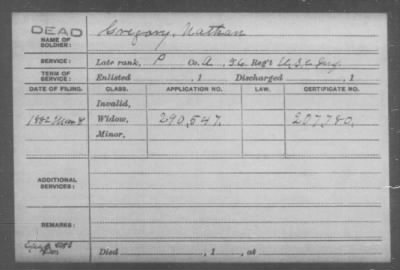 DEAD
NAME OF SOLDIER: Gregory, Nathan
SERVICE: Late rank, P Co. A, Reg't U.S.C. Inf.
TERM OF SERVICE: Enlisted , 1 Discharged , 1
DATE OF FILING. CLASS. APPLICATION NO. LAW. CERTIFICATE NO.
Invalid,
1882 Mar 8 Widow, 290,547. 207,780.
Minor,
ADDITIONAL SERVICES:
REMARKS:
Died , 1 , at